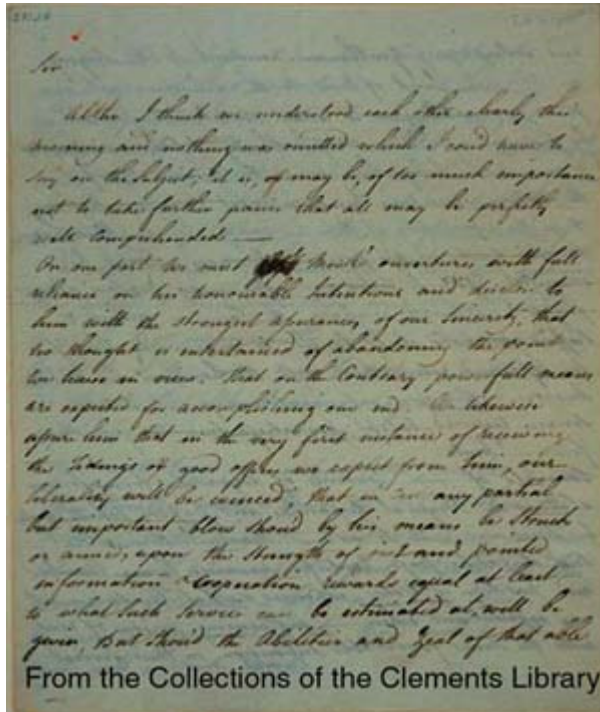 Sir
Altho I think we understood each other clearly this
morning and nothing was omitted which I could have to
say on the Subject; it is, or may be, of too much importance
not to take further pains that all may be perfectly
well comprehended —
On our part we meet Monk's ouvertures with full
reliance on his honourable Intentions and disclose to
him with the strongest assurances of our Sincerity, that
no thought is entertained of abandoning the point
we have in view. That on the Contrary powerfull means
are expected for accomplishing our end. We likewise
assure him that in the very first instance of receiving
the tidings or good offices we expect from him, our
liberality will be evinced, that in any partial
but important blow shoud by his means be Struck
or aimed, upon the Strength of just and pointed
information & Cooperation, rewards equal at least
to what Such Service can be estimated at, will be
given, But shoud the Abilities and Zeal of that able
From the Collections of the Clements Library